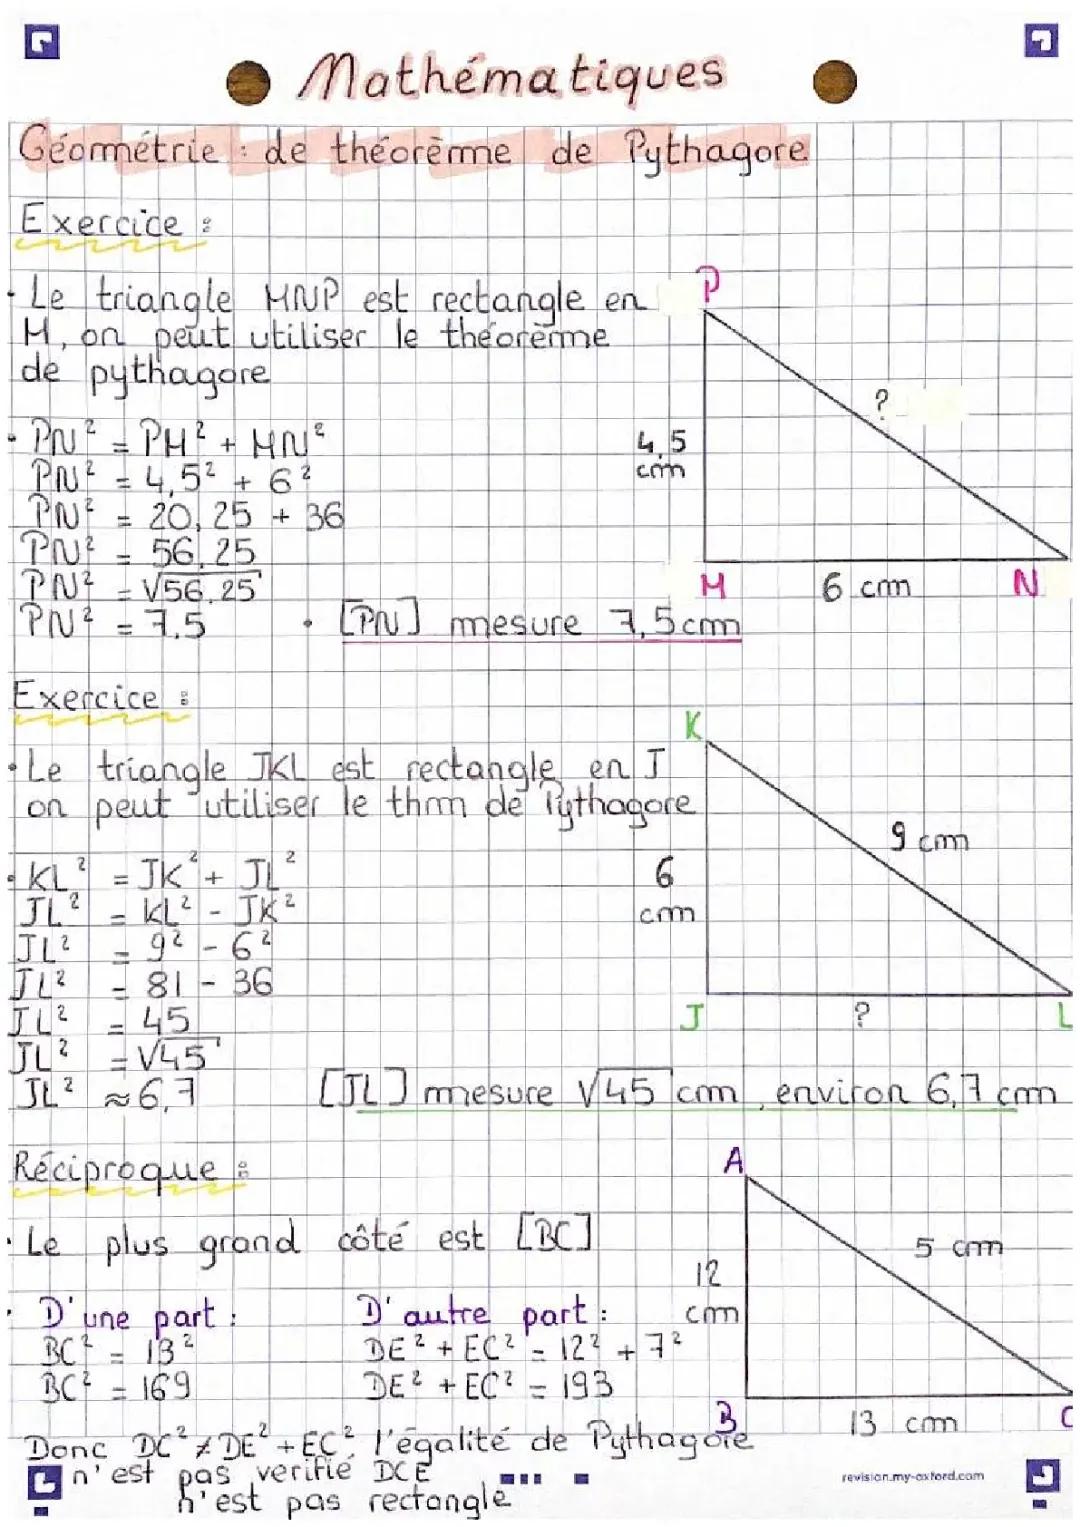 Mathématiques
Géométrie : de théorème de Pythagore
Exercice :
• Le triangle MNP est rectangle en
M, on peut utiliser le théorème
de pythagore
P
?
4,5
cm
M
6 cm
N
• PN² = PM² + MN²
PN² = 4,5² + 6²
PN² = 20,25 + 36
PN² = 56,25
PN² = √56,25
PN² = 7,5
• [PN] mesure 7,5cm
Exercice :
• Le triangle JKL est rectangle en J
on peut utiliser le thm de Pythagore
K
9 cm
6
cm
J
?
L
• KL² = JK² + JL²
JL² = KL² - JK²
JL² = 9² - 6²
JL² = 81 - 36
JL² = 45
JL² = √45
JL² ≈ 6,7
[JL] mesure √45 cm, environ 6,7 cm
Réciproque :
• Le plus grand côté est [BC]
A
5 cm
12
cm
B
13 cm
C
• D'une part :
BC² = 13²
BC² = 169
D'autre part :
DE² + EC² = 12² + 7²
DE² + EC² = 193
Donc DC² ≠ DE² + EC², l'égalité de Pythagore
n'est pas verifié DCE
n'est pas rectangle
revision.my-oxford.com